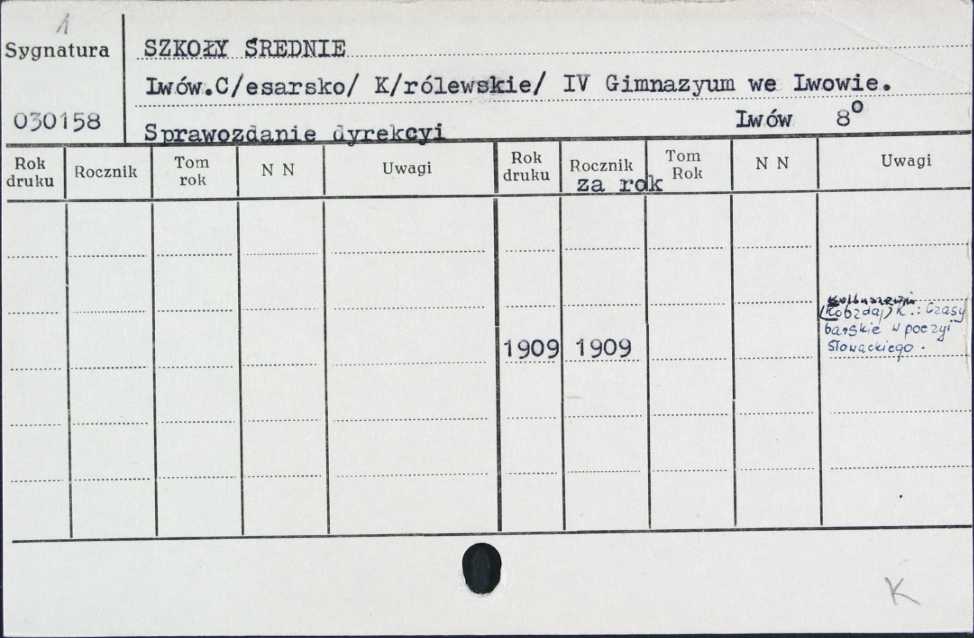 1
Sygnatura
SZKOŁY ŚREDNIE
Lwów.C/esarsko/ K/rólewskie/ IV Gimnazyum we Lwowie.
030158
Sprawozdanie dyrekcyi
Lwów 8°
Rok druku Rocznik Tom rok N N Uwagi Rok druku Rocznik Tom Rok N N Uwagi
za rok
(Kobzdaj) K.: Czasy
barskie w poezyi
Słowackiego.
1909 1909
K